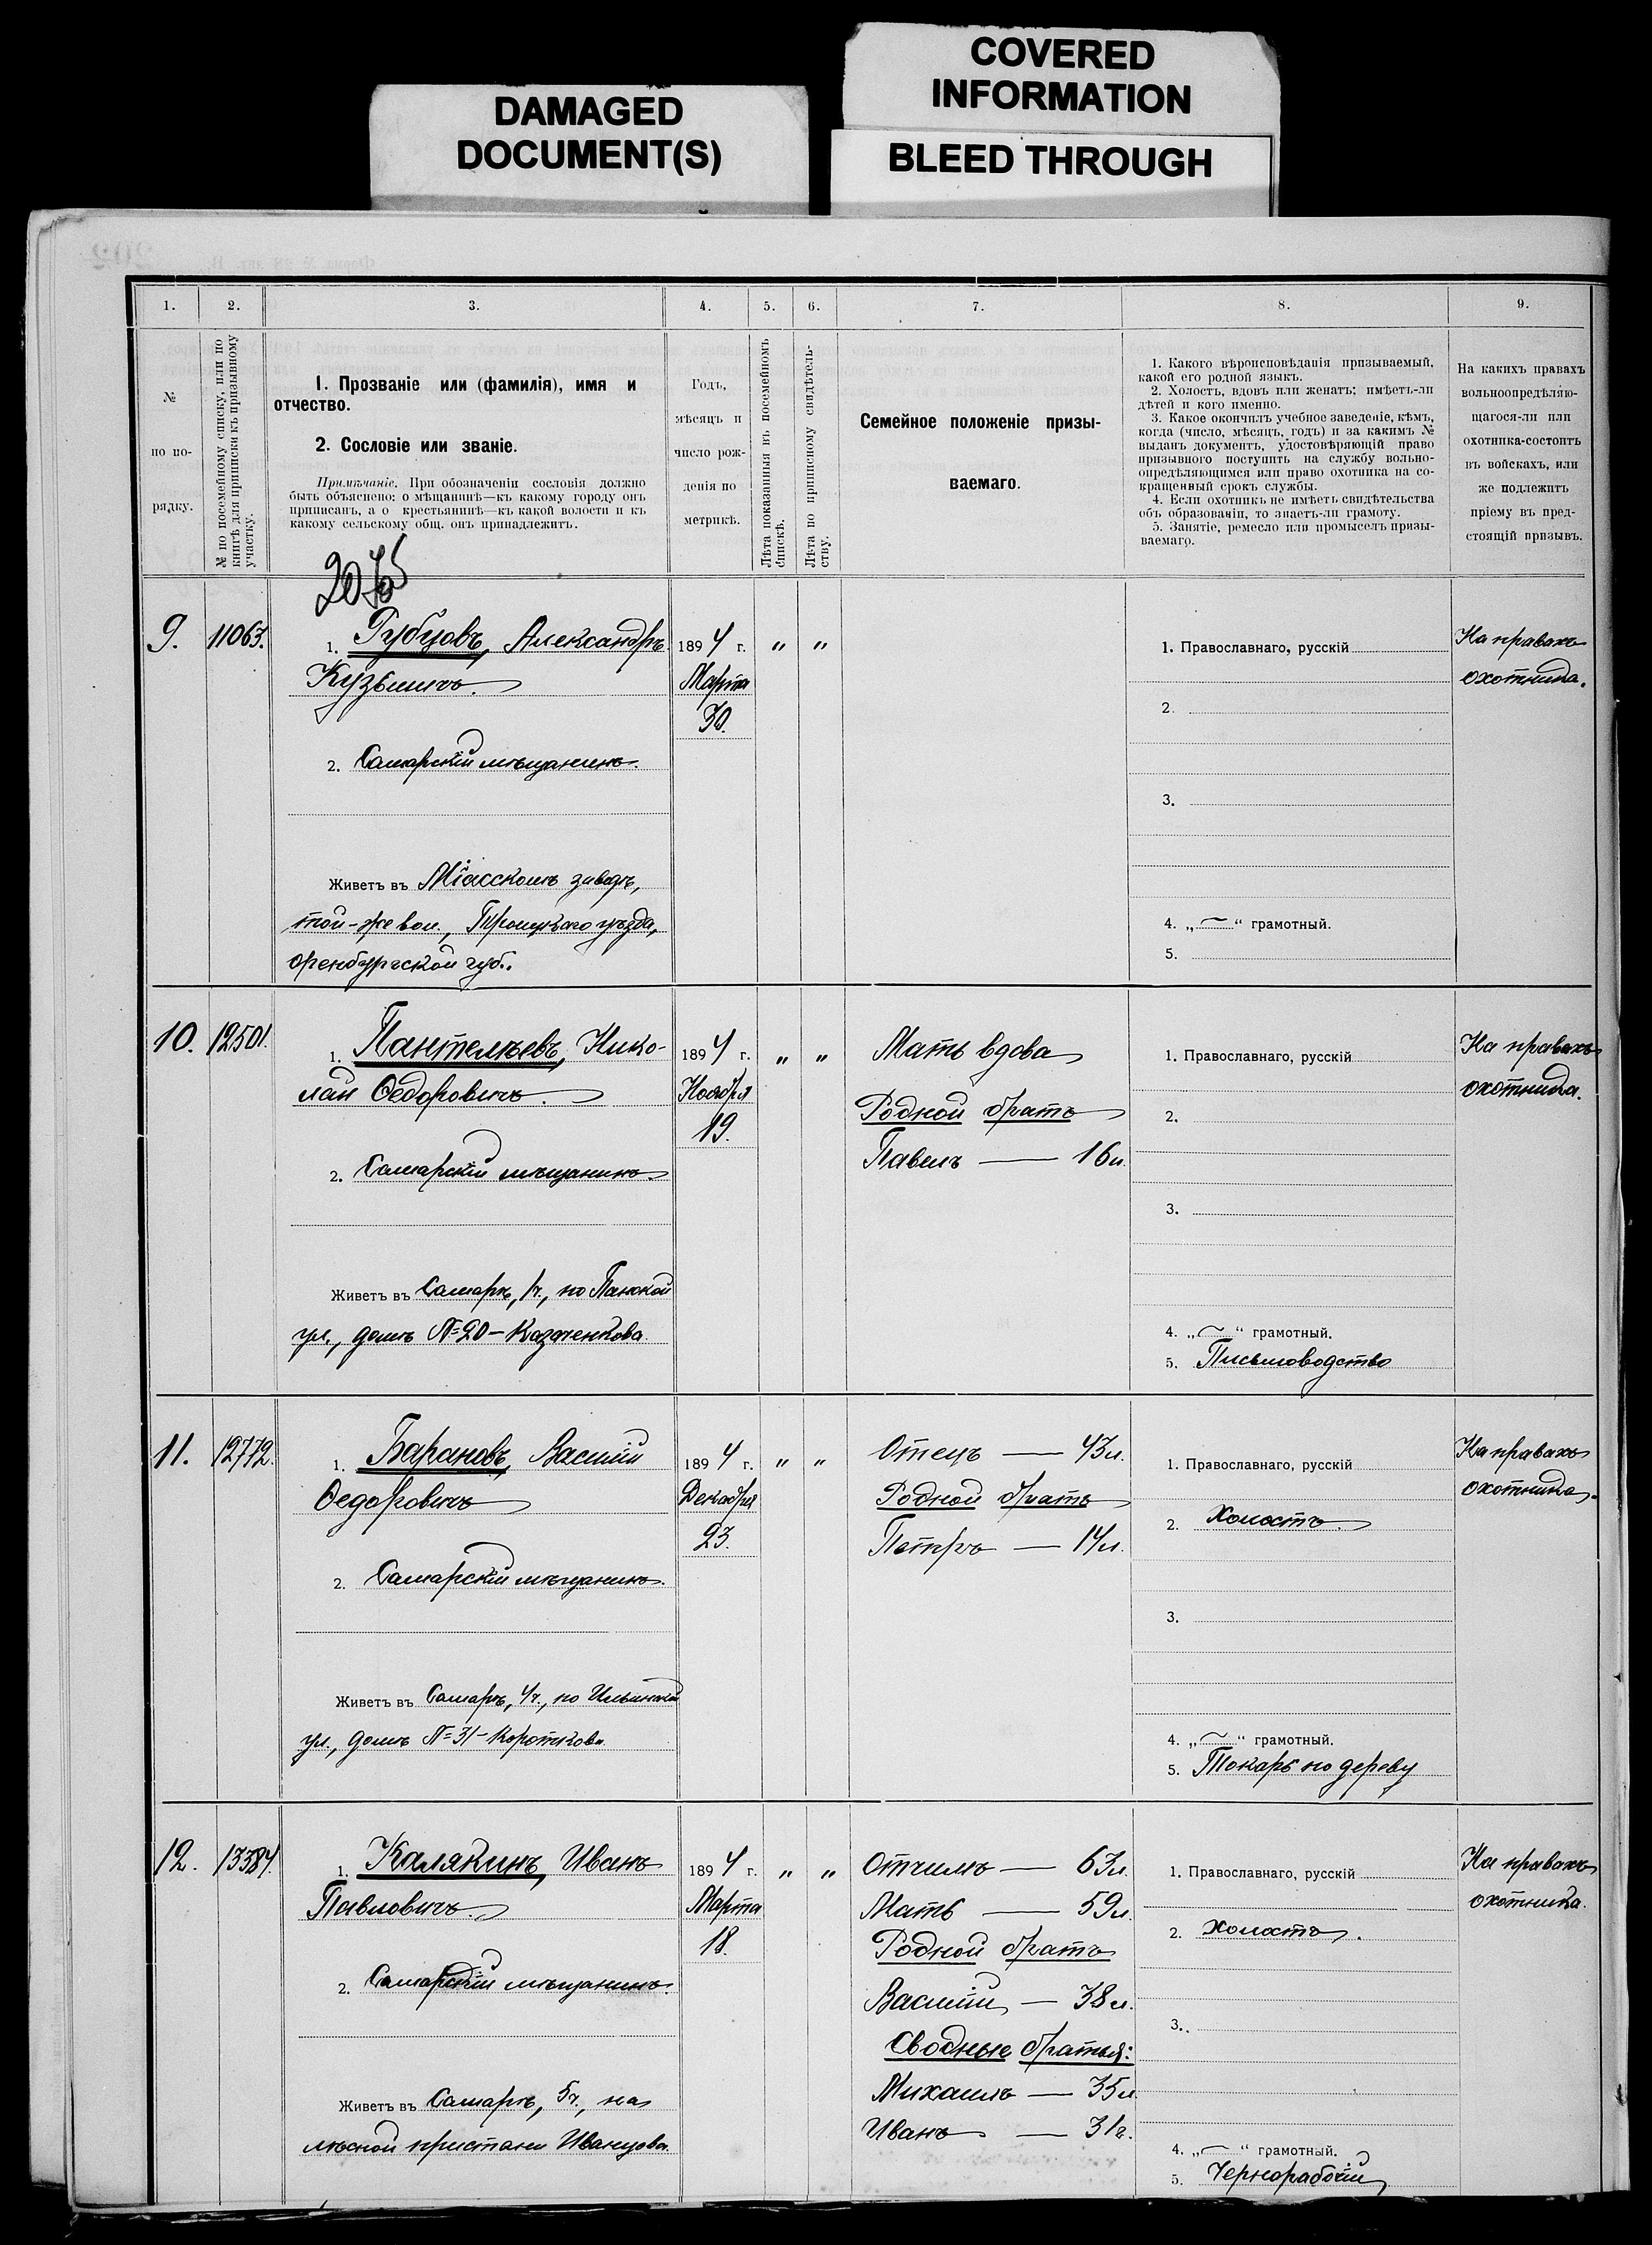 DAMAGED
DOCUMENT(S)
COVERED
INFORMATION
BLEED THROUGH
1.
2.
3.
4.
5.
6.
7.
8.
9.
№
по по-
рядку.
№ по посемейному списку, или по
книгѣ для приписки къ призывному
участку.
1. Прозваніе или (фамилія), имя и
отчество.
2. Сословіе или званіе.
Примѣчаніе. При обозначеніи сословія должно
быть объяснено: о мѣщанинѣ—къ какому городу онъ
приписанъ, а о крестьянинѣ—къ какой волости и къ
какому сельскому общ. онъ принадлежитъ.
Годъ,
мѣсяцъ и
число рож-
денія по
метрикѣ.
Лѣта показанныя въ посемейномъ
спискѣ.
Лѣта по приписному свидѣтель-
ству.
Семейное положеніе призы-
ваемаго.
1. Какого вѣроисповѣданія призываемый,
какой его родной языкъ.
2. Холостъ, вдовъ или женатъ; имѣетъ-ли
дѣтей и кого именно.
3. Какое окончилъ учебное заведеніе, кѣмъ,
когда (число, мѣсяцъ, годъ) и за какимъ №
выданъ документъ, удостовѣряющій право
призывного поступить на службу вольно-
опредѣляющимся или право охотника на со-
кращенный срокъ службы.
4. Если охотникъ не имѣетъ свидѣтельства
объ образованіи, то знаетъ-ли грамоту.
5. Занятіе, ремесло или промыселъ призы-
ваемаго.
На какихъ правахъ
вольноопредѣляю-
щагося-ли или
охотника-состоитъ
въ войскахъ, или
же подлежитъ
пріему въ пред-
стоящій призывъ.
9.
11063.
1. Рубцовъ, Александръ
Кузьмичъ.
2. Самарскій мѣщанинъ.
Живетъ въ Міасскомъ заводѣ,
той-же вол., Троицкаго уѣзда,
Оренбургской губ.
1894 г.
Марта
30.
" "
1. Православнаго, русскій
2.
3.
4. „ “ грамотный.
5.
На правахъ
охотника.
10.
12501.
1. Пантелѣевъ, Нико-
лай Ѳедоровичъ.
2. Самарскій мѣщанинъ
Живетъ въ Самарѣ, 1ч., по Панской
ул., домъ №20 – Казаченкова
1894 г.
Ноября
19.
" "
Мать вдова
Родной братъ
Павелъ — 16л.
1. Православнаго, русскій
2.
3.
4. „ “ грамотный.
5. Письмоводство
На правахъ
охотника.
11.
12772.
1. Барановъ, Василій
Ѳедоровичъ
2. Самарскій мѣщанинъ.
Живетъ въ Самарѣ, 4ч., по Ильинской
ул., домъ №31 – Короткова
1894 г.
Декабря
23.
" "
Отецъ — 43л.
Родной братъ
Петръ — 14л.
1. Православнаго, русскій
2. Холостъ.
3.
4. „ “ грамотный.
5. Токарь по дереву
На правахъ
охотника.
12.
13384.
1. Калякинъ, Иванъ
Павловичъ.
2. Самарскій мѣщанинъ.
Живетъ въ Самарѣ, 5ч., на
лѣсной пристани Иванцова
1894 г.
Марта
18.
" "
Отчимъ — 63л.
Мать — 59л.
Родной братъ
Василій — 38л.
Сводные братья:
Михаилъ — 35л.
Иванъ — 31г.
1. Православнаго, русскій
2. Холостъ.
3.
4. „ “ грамотный.
5. Чернорабочій
На правахъ
охотника.